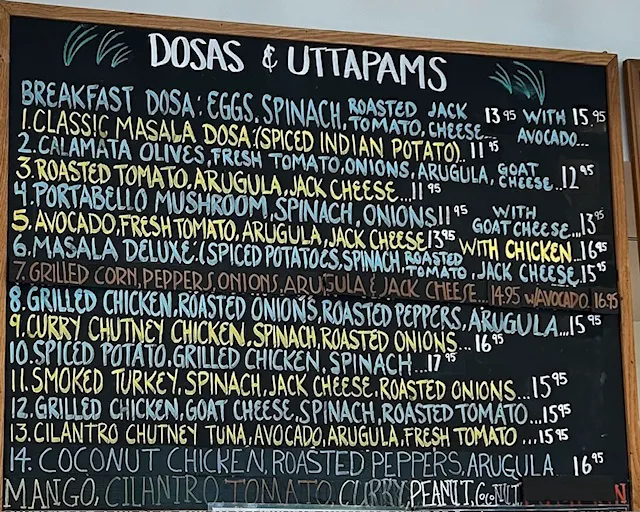 DOSAS & UTTAPAMS
BREAKFAST DOSA: EGGS, SPINACH, ROASTED TOMATO, JACK CHEESE... 13.95 WITH AVOCADO... 15.95
1. CLASSIC MASALA DOSA: (SPICED INDIAN POTATO).. 11.95
2. CALAMATA OLIVES, FRESH TOMATO, ONIONS, ARUGULA, GOAT CHEESE... 12.95
3. ROASTED TOMATO, ARUGULA, JACK CHEESE... 11.95
4. PORTABELLO MUSHROOM, SPINACH, ONIONS 11.95 WITH GOAT CHEESE... 13.95
5. AVOCADO, FRESH TOMATO, ARUGULA, JACK CHEESE 13.95 WITH CHICKEN... 16.95
6. MASALA DELUXE: (SPICED POTATOES, SPINACH, ROASTED TOMATO, JACK CHEESE. 15.95
7. GRILLED CORN, PEPPERS, ONIONS, ARUGULA & JACK CHEESE... 14.95 W/AVOCADO. 16.95
8. GRILLED CHICKEN, ROASTED ONIONS, ROASTED PEPPERS, ARUGULA... 15.95
9. CURRY CHUTNEY CHICKEN, SPINACH, ROASTED ONIONS... 16.95
10. SPICED POTATO, GRILLED CHICKEN, SPINACH... 17.95
11. SMOKED TURKEY, SPINACH, JACK CHEESE, ROASTED ONIONS... 15.95
12. GRILLED CHICKEN, GOAT CHEESE, SPINACH, ROASTED TOMATO... 15.95
13. CILANTRO CHUTNEY TUNA, AVOCADO, ARUGULA, FRESH TOMATO... 15.95
14. COCONUT CHICKEN, ROASTED PEPPERS, ARUGULA... 16.95
MANGO, CILANTRO TOMATO, CURRY, PEANUT, COCONUT